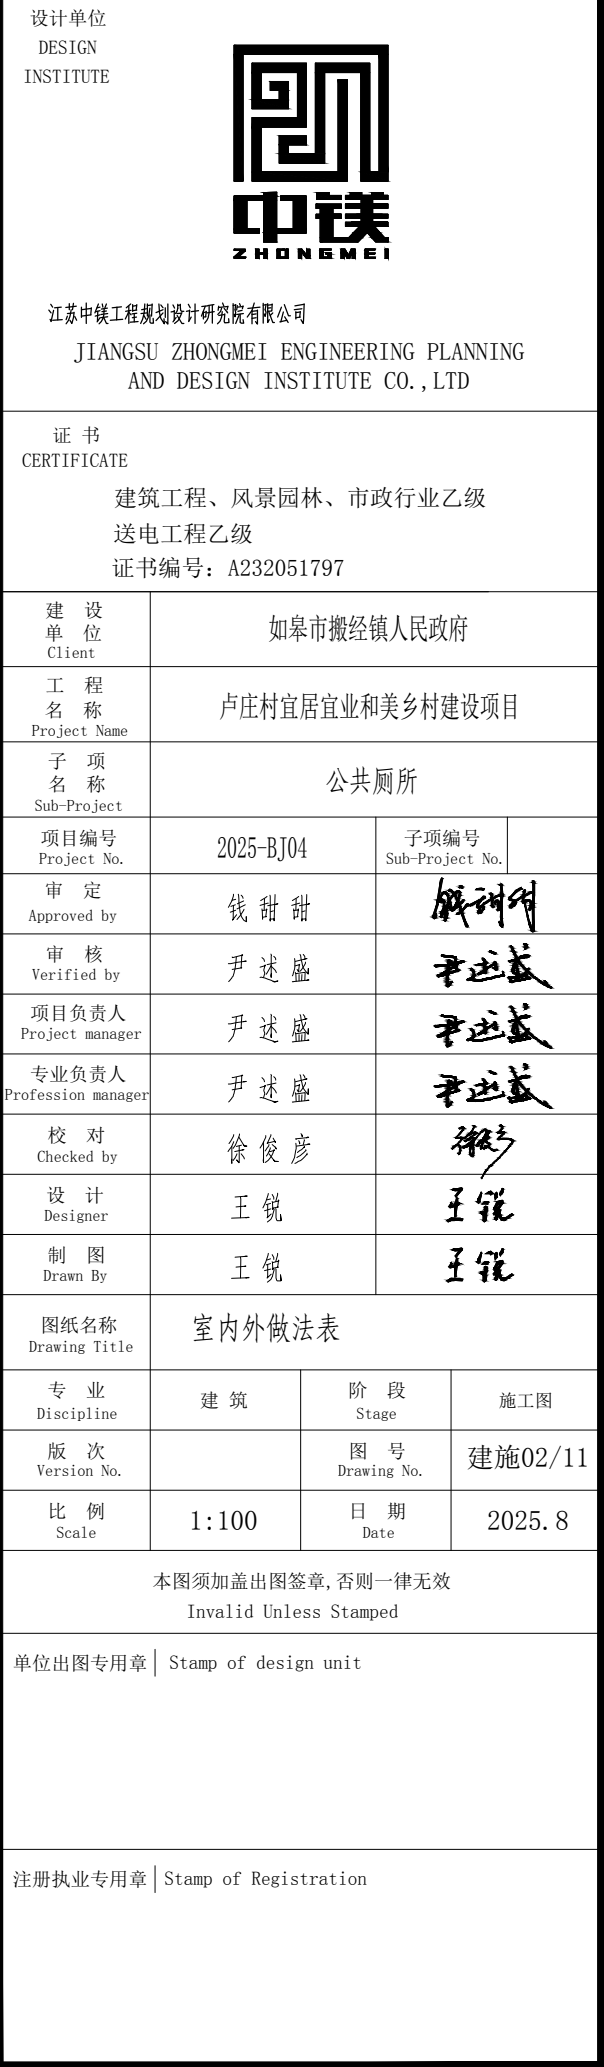 设计单位
DESIGN
INSTITUTE
中镁
ZHONGMEI
江苏中镁工程规划设计研究院有限公司
JIANGSU ZHONGMEI ENGINEERING PLANNING
AND DESIGN INSTITUTE CO.,LTD
证 书
CERTIFICATE
建筑工程、风景园林、市政行业乙级
送电工程乙级
证书编号：A232051797
建 设
单 位
Client
如皋市搬经镇人民政府
工 程
名 称
Project Name
卢庄村宜居宜业和美乡村建设项目
子 项
名 称
Sub-Project
公共厕所
项目编号
Project No.
2025-BJ04
子项编号
Sub-Project No.
审 定
Approved by
钱 甜 甜
钱甜甜
审 核
Verified by
尹 述 盛
尹述盛
项目负责人
Project manager
尹 述 盛
尹述盛
专业负责人
Profession manager
尹 述 盛
尹述盛
校 对
Checked by
徐 俊 彦
徐俊彦
设 计
Designer
王 锐
王锐
制 图
Drawn By
王 锐
王锐
图纸名称
Drawing Title
室内外做法表
专 业
Discipline
建 筑
阶 段
Stage
施工图
版 次
Version No.
图 号
Drawing No.
建施02/11
比 例
Scale
1:100
日 期
Date
2025.8
本图须加盖出图签章,否则一律无效
Invalid Unless Stamped
单位出图专用章 Stamp of design unit
注册执业专用章 Stamp of Registration